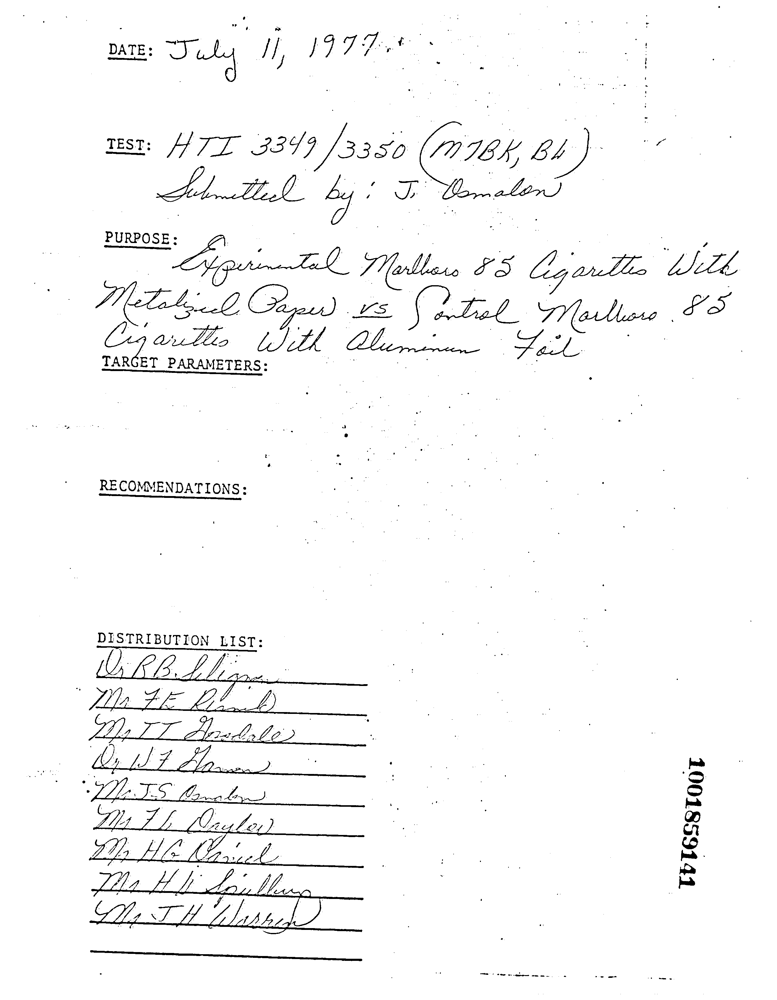 DATE: July 11, 1977
TEST: HTI 3349/3350 (M7BK, BL)
Submitted by: J. Osmalon
PURPOSE:
Experimental Marlboro 85 Cigarettes With
Metalized Paper vs Control Marlboro 85
Cigarettes With Aluminum Foil
TARGET PARAMETERS:
RECOMMENDATIONS:
DISTRIBUTION LIST:
Dr R.B. Seligman
Mr F E Resnik
Mr T T Goodale
Dr W F Gannon
Mr J S Osmalon
Mr F L Daylor
Mr H G Daniel
Mr H L Spielberg
Mr J H Warren
1001859141